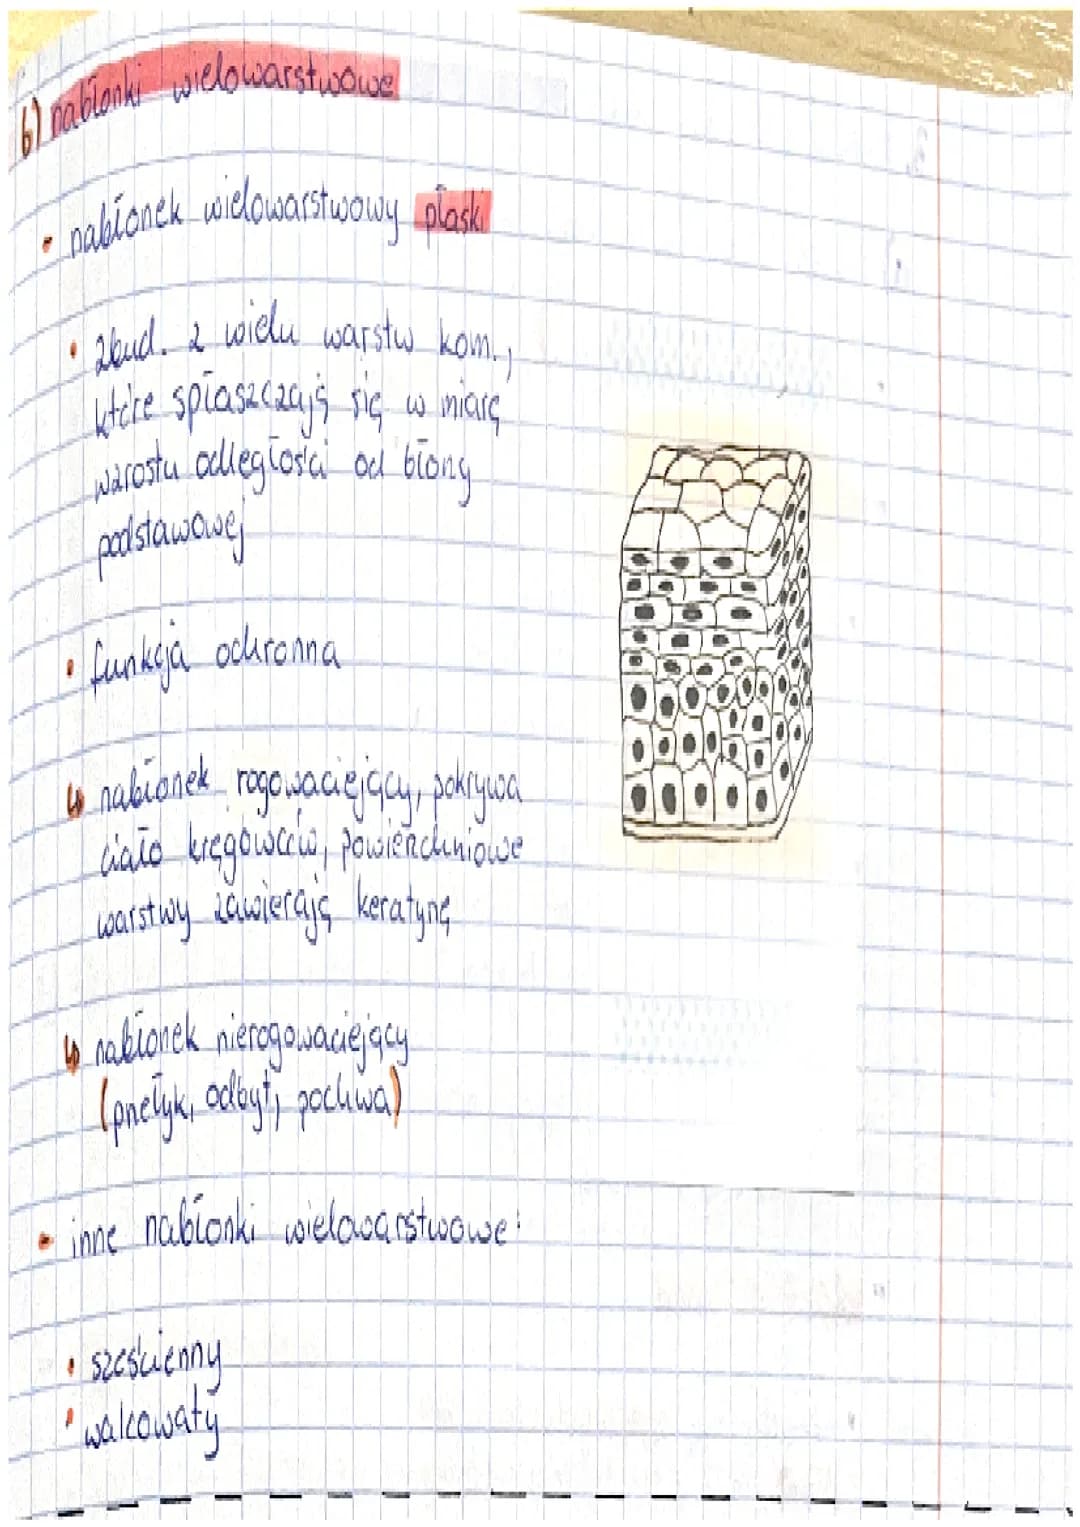 b) nabłonki wielowarstwowe
- nabłonek wielowarstwowy płaski
• zbud. z wielu warstw kom.,
które spłaszczają się w miarę
wzrostu odległości od błony
podstawowej
• funkcja ochronna
↳ nabłonek rogowaciejący, pokrywa
ciało kręgowców, powierzchniowe
warstwy zawierają keratynę
↳ nabłonek nierogowaciejący
(przełyk, odbyt, pochwa)
- inne nabłonki wielowarstwowe:
• sześcienny
• walcowaty